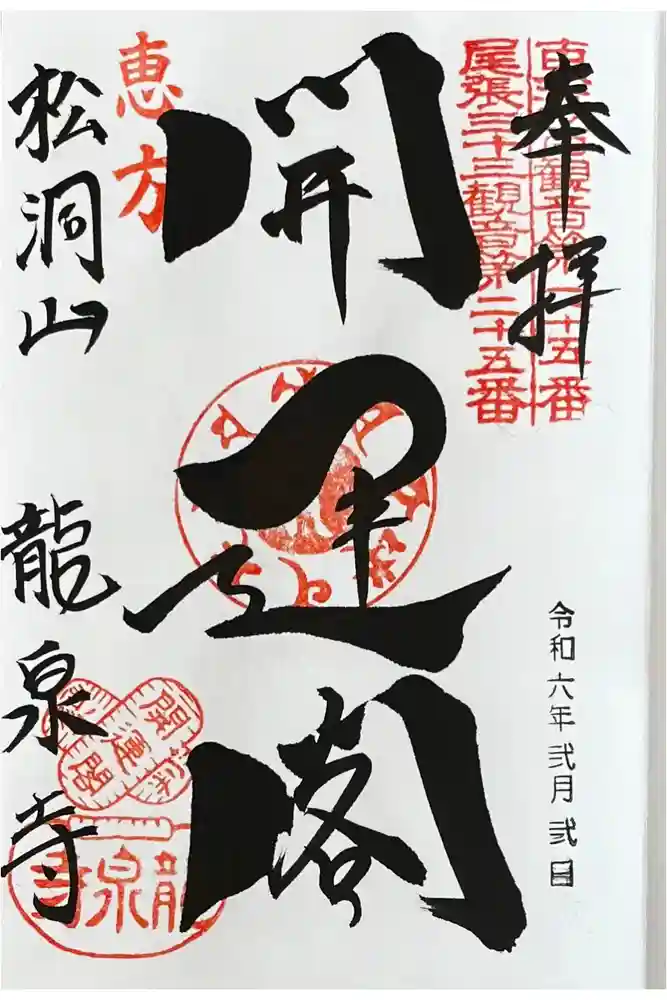 奉拝
尾張三十三観音第二十五番
令和六年弐月弐日
開運閣
恵方
松洞山
龍泉寺
開運閣
龍泉